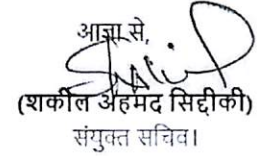 आज्ञा से,
(शकील अहमद सिद्दीकी)
संयुक्त सचिव।